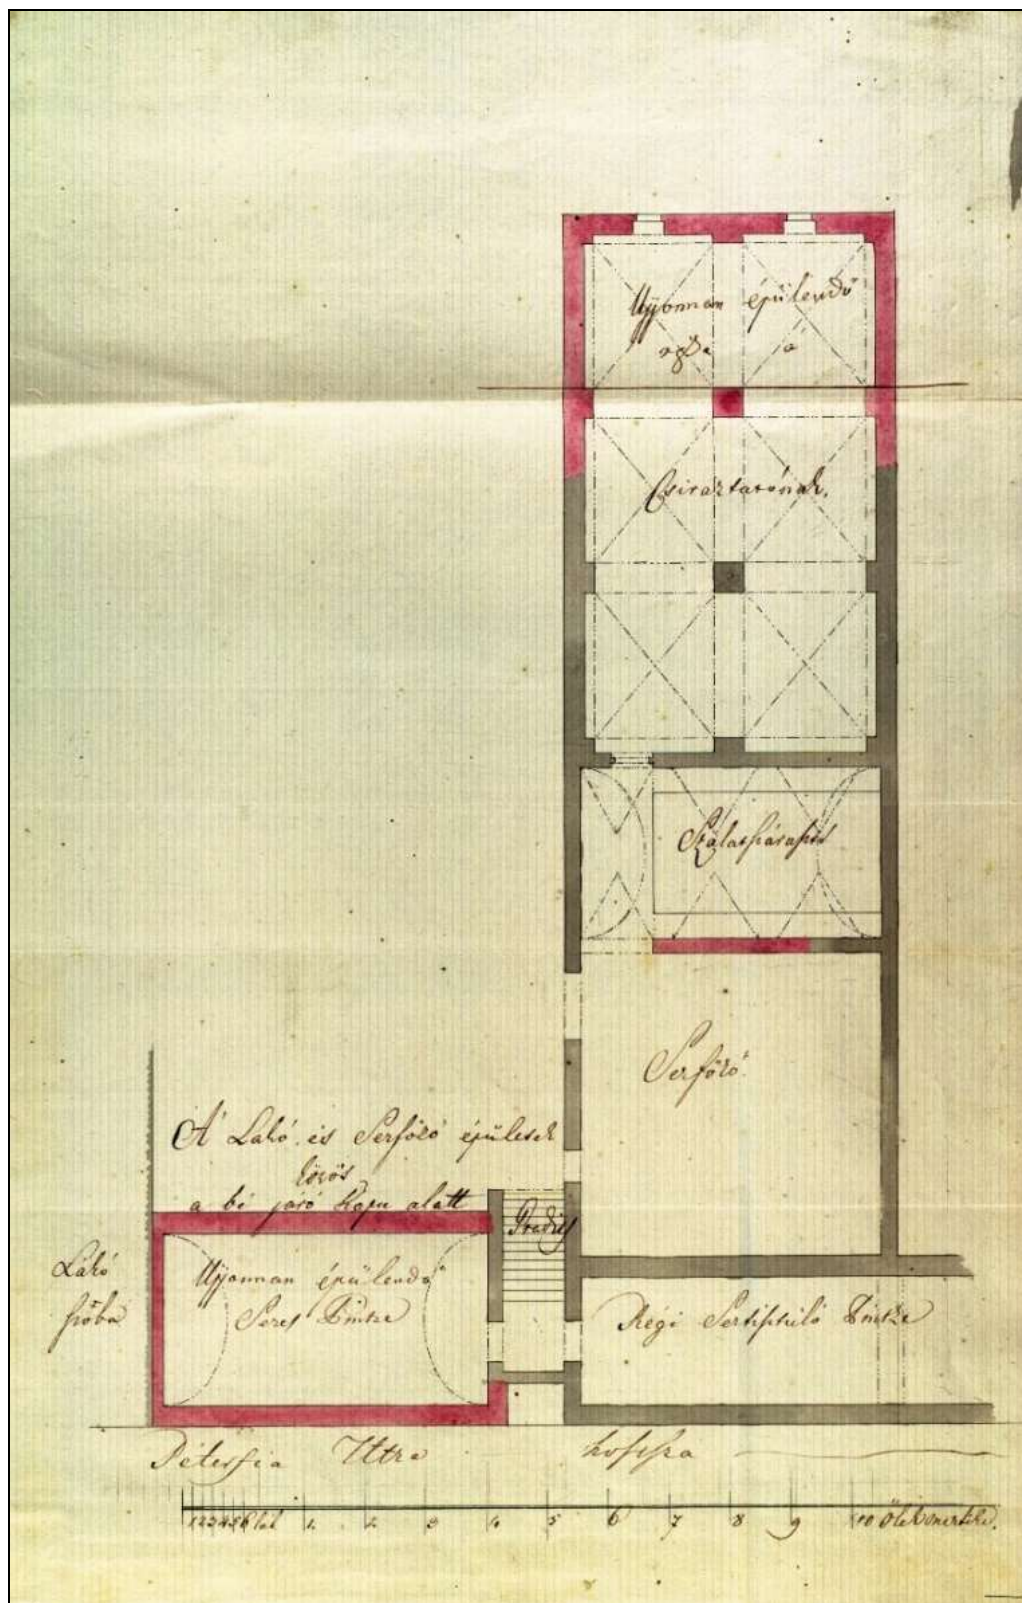 Ujjonnan épülendő
Csiraztatónak.
Szálaszárasztó
Serfőző.
A' Lakó és Serfőző épületek
közös
a bé járó Kapu alatt
Gradits
Lakó
szóba
Ujjonnan épülendő
Seres Pintze
Régi Sertisztuló Pintze
Péterfia Uttza hoszsza
1 2 3 4 5 6 láb 1. 2. 3 4 5 6 7 8 9 10 Ölek